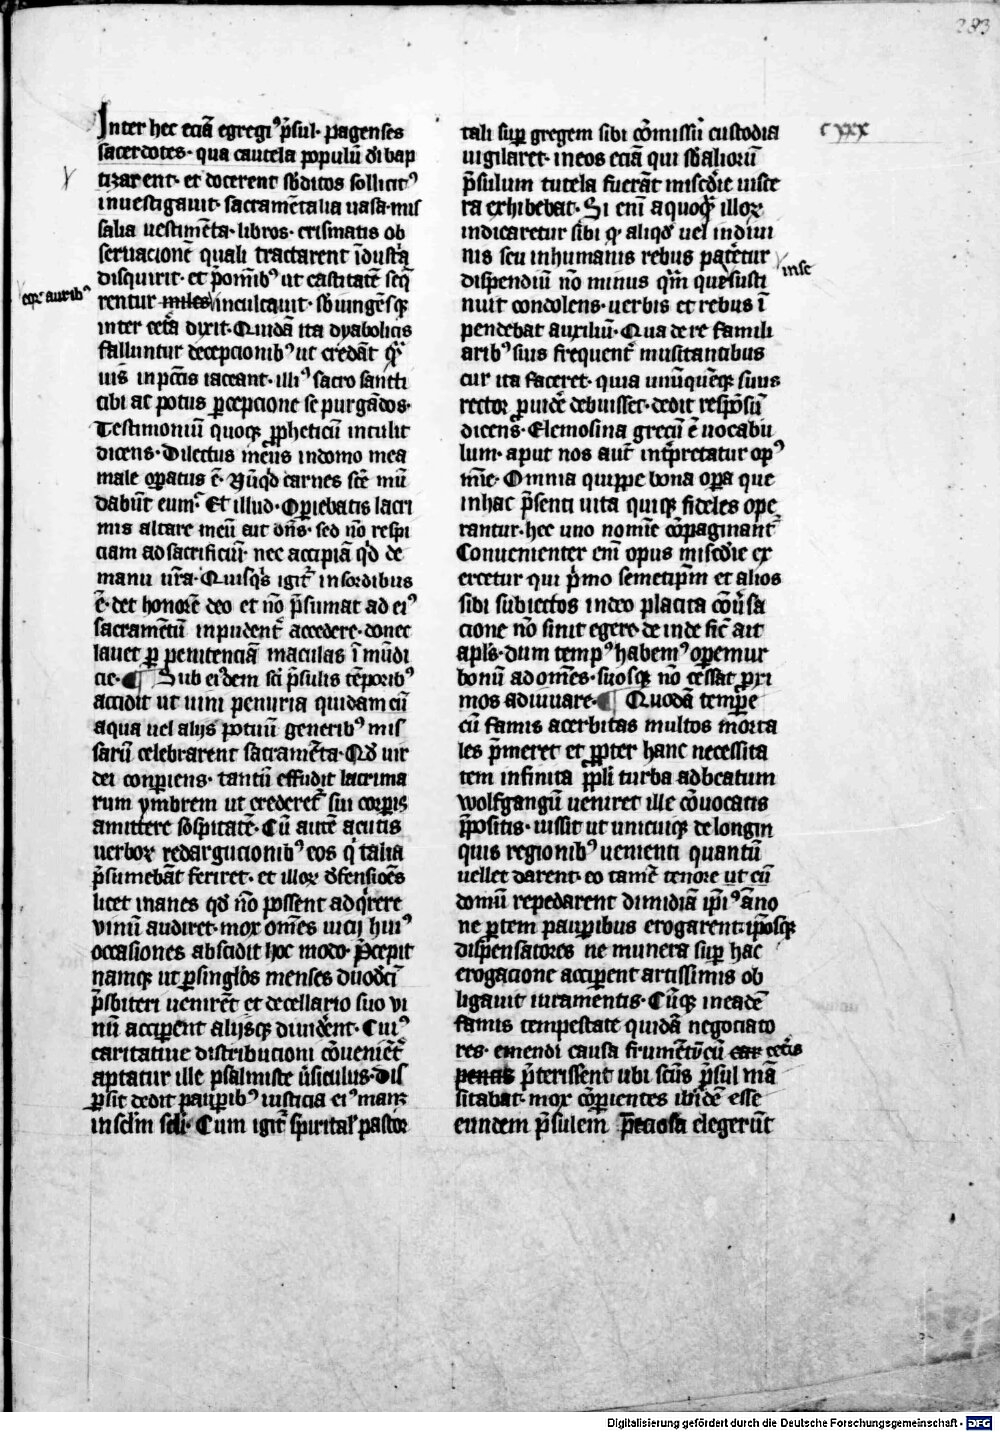 283
Inter hec eciā egregiꝰ p̄sul · pagenses
sacerdotes · qua cautela populū d̄i bap
tizarent · et docerent sb̄ditos sollicitꝰ
inuestigauit · sacramētalia uasa · mis
salia uestimēta · libros · crismatis ob
seruacionē quali tractarent īdustͣa
disquirit · et p̄omīb̄ꝰ ut castitatē seqͣ
eoꝝ auribꝰ
rentur miles inculcauit · sb̄iungēsqꝫ
inter cet̄a dixit · Quidā ita dyabolicis
falluntur decepcionibꝰ ut credāt qͣ
uis in pctīs iaceant · illiꝰ sacro sancti
cibi ac potus ꝑcepcione se purgādos ·
Testimoniū quoqꝫ ꝓpheticū intulit
dicens · Dilectus meus in domo mea
male oꝑatus ē · Nūqd̄ carnes scē mū
dabūt eum · Et illud · Oꝑiebatis lacri
mis altare meū ait dn̄s · sed nō respi
ciam ad sacrificiū · nec accipiā qd̄ de
manu ur̄a · Quisqͥs igit̄ in sordibus
ē · det honorē deo et nō p̄sumat ad eiꝰ
sacramētū inpudent̄ accedere · donec
lauet ꝑ penitenciā maculas īmūdi
cie · ¶ Sub eiꝰdem sc̄i p̄sulis tēporibꝰ
accidit ut uini penuria quidam cū
aqua uel alijs potuū generibꝰ mis
sarū celebrarent sacramēta · Qd̄ uir
dei conꝑiens · tantū effudit lacrima
rum ymbrem ut crederet̄ sui corꝑis
amittere sospitatē · Cū autē acutis
uerboꝝ redargucionibꝰ eos qͥ talia
p̄sumebāt feriret · et illoꝝ d̄fensiōes
licet inanes qd̄ nō possent adqͥrere
uinū audiret · mox om̄es uicij huiꝰ
occasiones abscidit hoc modo · P̄cepit
namqꝫ ut ꝑ singl̄os menses duod̄cī
p̄sbiteri uenirēt et de cellario suo vi
nū acciꝑent alijsqꝫ diuid̄ent · Cuiꝰ
caritatiue distribucioni cōuenient̄
aptatur ille psalmiste ūsiculus · Dis
ꝑsit dedit pauꝑibꝰ iusticia eiꝰ manꝫ
in sclm̄ scl̄i · Cum igit̄ spiritalꝭ pastor
c xxx
tali suꝑ gregem sibi cōmissū custodia
uigilaret · in eos eciā qui sb̄ alioꝝ
p̄sulum tutela fuerāt misc̄die uisce
ra exhibebat · Si enī a quoqͣ illoꝝ
indicaretur sibi qͩ aliqͩs uel in diui
nis seu in humanis rebus pateretur
insc
dispendiū nō minus qͣm que susti
nuit condolens · uerbis et rebus ī
pendebat auxiliū · Qua de re famili
aribꝰ suis frequent̄ musitantibus
cur ita faceret · quia unūquēqꝫ suus
rector ꝓuidē debuisset · dedit respōsū
dicens · Elemosina grecū ē uocabu
lum · aput nos aut̄ int̄pretatur opꝰ
mīe · Omnia quippe bona oꝑa que
in hac p̄senti uita quiqꝫ fideles ope
rantur · hec uno nomīe cōpaginant̄
Conuenienter enī opus misc̄die ex
ercetur qui p̄mo semetip̄m et alios
sibi subiectos in deo placita cōūsa
cione nō sinit egere · de inde sic̄ ait
apl̄s · dum tempꝰ habemꝰ oꝑemur
bonū ad om̄es · suosqꝫ nō cessat ꝓxi
mos adiuuare · ¶ Quodā temꝑe
cū famis acerbitas multos morta
les p̄meret et ꝓpter hanc necessita
tem infinita ppl̄i turba ad beatum
wolfgangū ueniret ille cōuocatis
p̄positis · iussit ut unicuiqꝫ de longin
quis regionibꝰ uenienti quantū
uellet darent · eo tamē tenore ut cū
domū repedarent dimidiā ip̄iꝰ āno
ne ꝑtem pauꝑibus erogarent · ip̄osqꝫ
dispensatores ne munera suꝑ hac
erogacione acciꝑent artissimis ob
ligauit iuramentis · Cūqꝫ in eadē
famis tempestate quidā negociato
res · emendi causa frumētū cū car cet̄is
penas p̄terissent ubi scūs p̄sul mā
sitabat · mox cōꝑientes ibidē esse
eundem p̄sulem p̄ciosa elegerūt
Digitalisierung gefördert durch die Deutsche Forschungsgemeinschaft - DFG